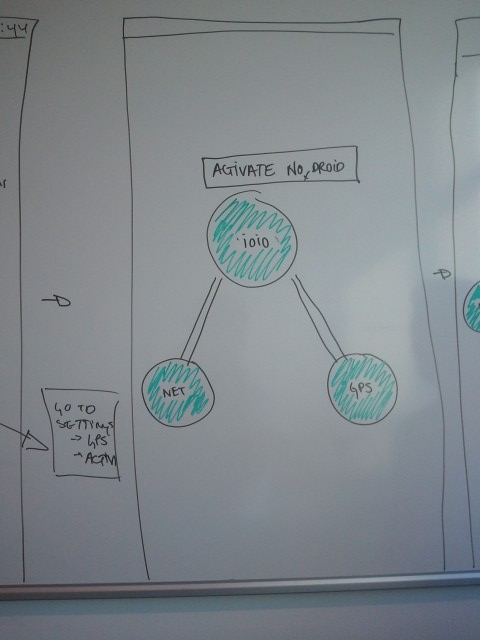 :44
ACTIVATE NOxDROID
ioio
NET
GPS
GO TO
SETTINGS
→ GPS
→ ACTIV